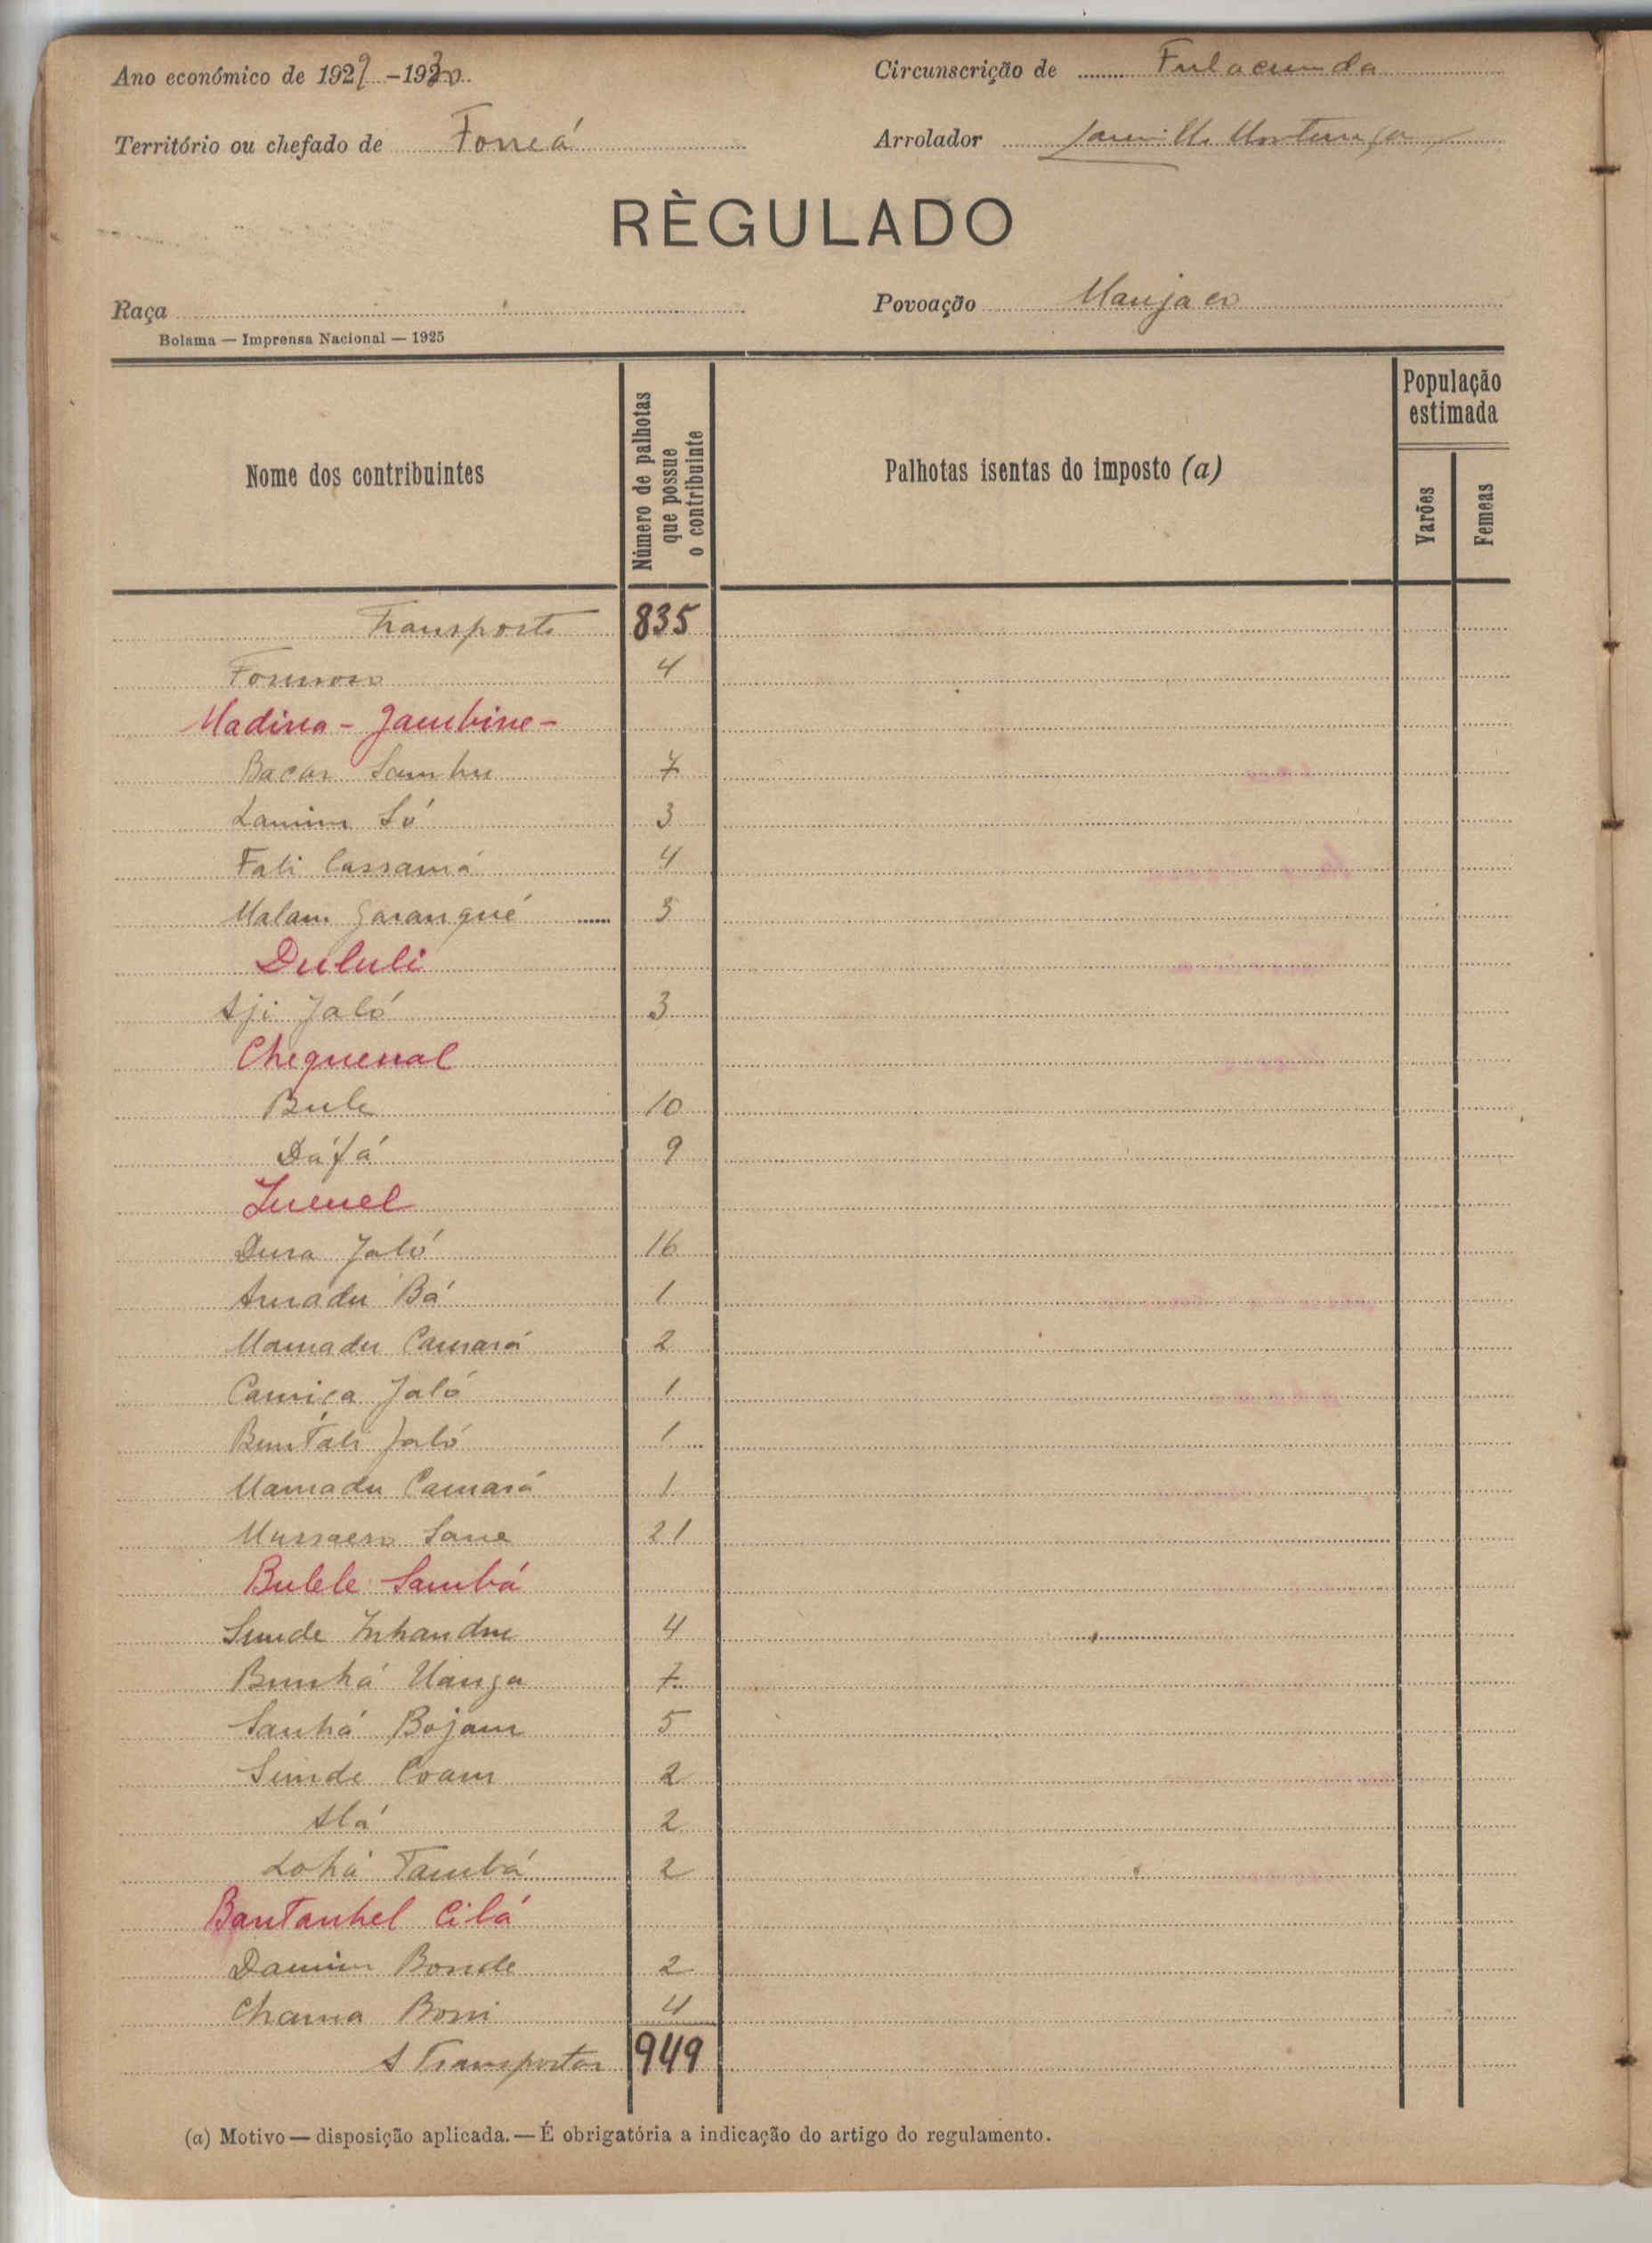 Ano económico de 1929-1930
Circunscrição de Fulacunda
Território ou chefado de Forreá
Arrolador
RÈGULADO
Raça
Povoação Manjaco
Bolama — Imprensa Nacional — 1925
Nome dos contribuintes
Número de palhotas que possue o contribuinte
Palhotas isentas do imposto (a)
População estimada
Varões
Femeas
Transporte 835
Formoso 4
Madina - Jambine -
Bacar Sambu 7
Lamim Só 3
Fali Cassamá 4
Malam Garanqué 3
Dululi
Aji Jaló 3
Chequenal
Bule 10
Dáfá 9
Juenel
Dura Jaló 16
Amadu Bá 1
Mamadu Camará 2
Camiça Jaló 1
Buntáli Jaló 1
Mamadu Camará 1
Sane 21
Bulele Sambá
Sunde Inhandru 4
Bunhá Uanga 7
Sanhá Bojam 5
Sunde Coam 2
Alá 2
Lohá Tambá 2
Bantanhel Cilá
Damim Bonde 2
Chama Boni 4
A Transportar 949
(a) Motivo — disposição aplicada. — É obrigatória a indicação do artigo do regulamento.